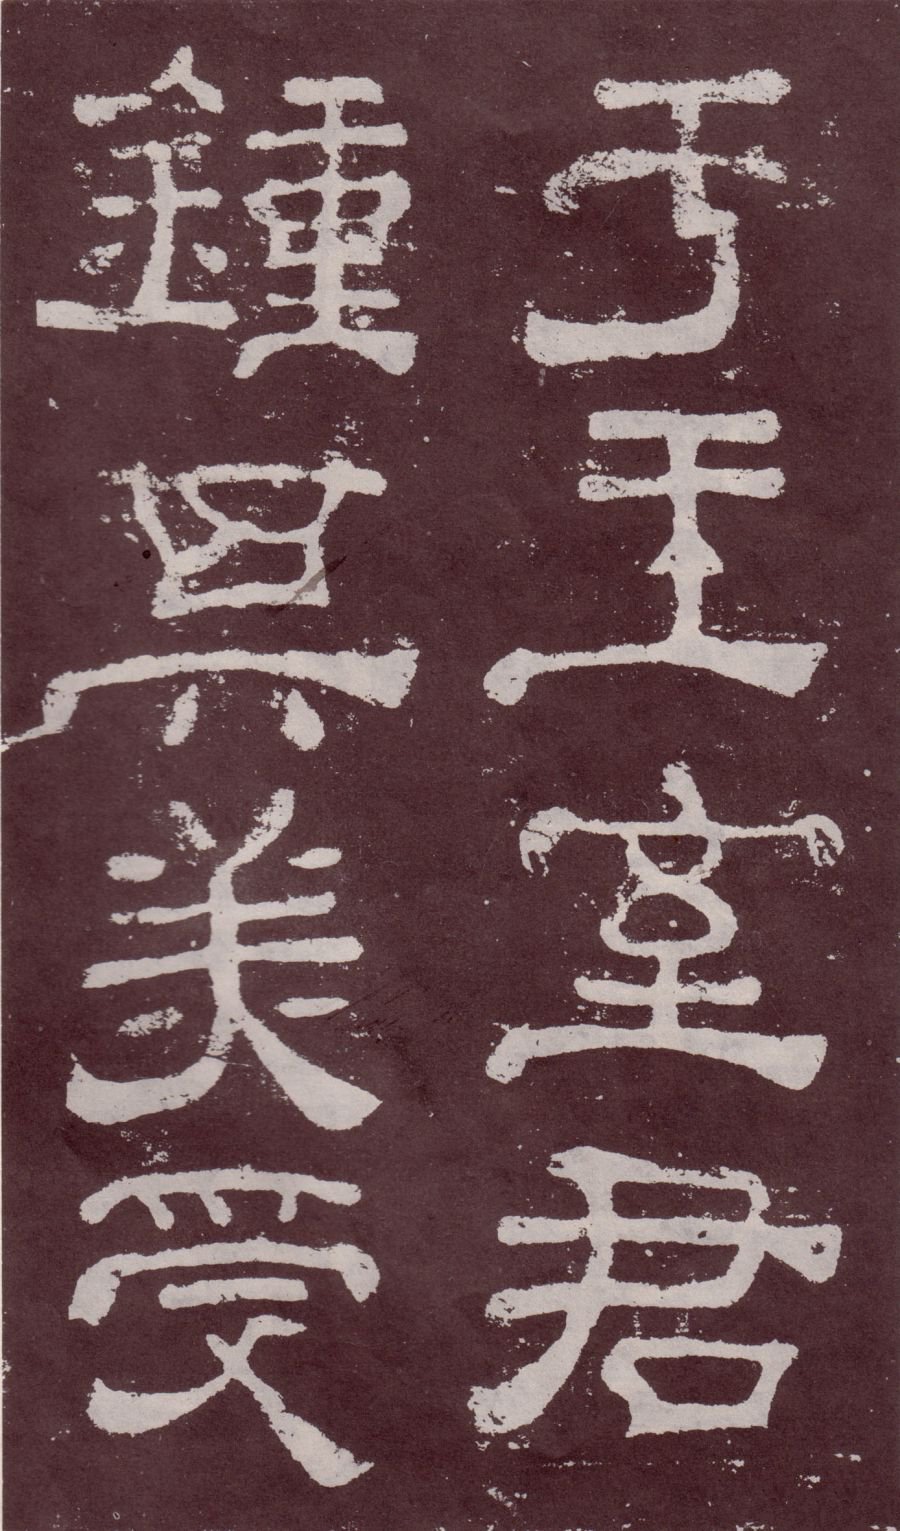 于王室君
鍾其美受